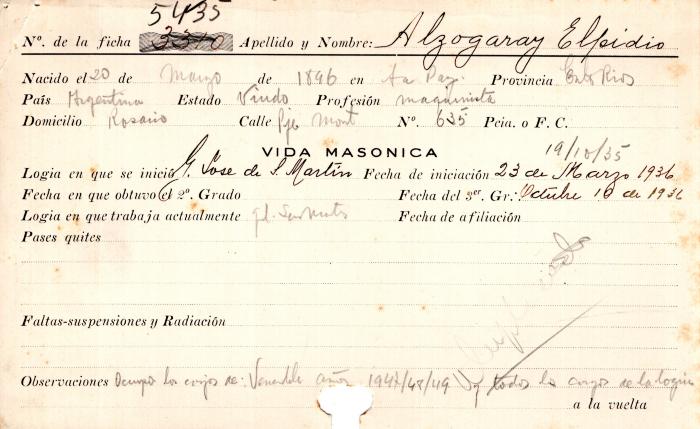 5435
Nº. de la ficha 3310 Apellido y Nombre: Alzogaray Elpidio
Nacido el 20 de Marzo de 1896 en La Paz. Provincia Ento Rios
País Argentina Estado Viudo Profesión maquinista
Domicilio Rosario Calle Pje Mont Nº. 635 Pcia. o F. C.
VIDA MASONICA 19/10/35
Logia en que se inició G. Jose de S. Martín Fecha de iniciación 23 de Marzo 1936
Fecha en que obtuvo el 2º. Grado Fecha del 3er. Gr. Octubre 10 de 1936
Logia en que trabaja actualmente Fecha de afiliación
Pases quites
Faltas-suspensiones y Radiación
Observaciones Ocupo los cargos de: Venerable años 1947/48/49 y todos los cargos de la logia
a la vuelta